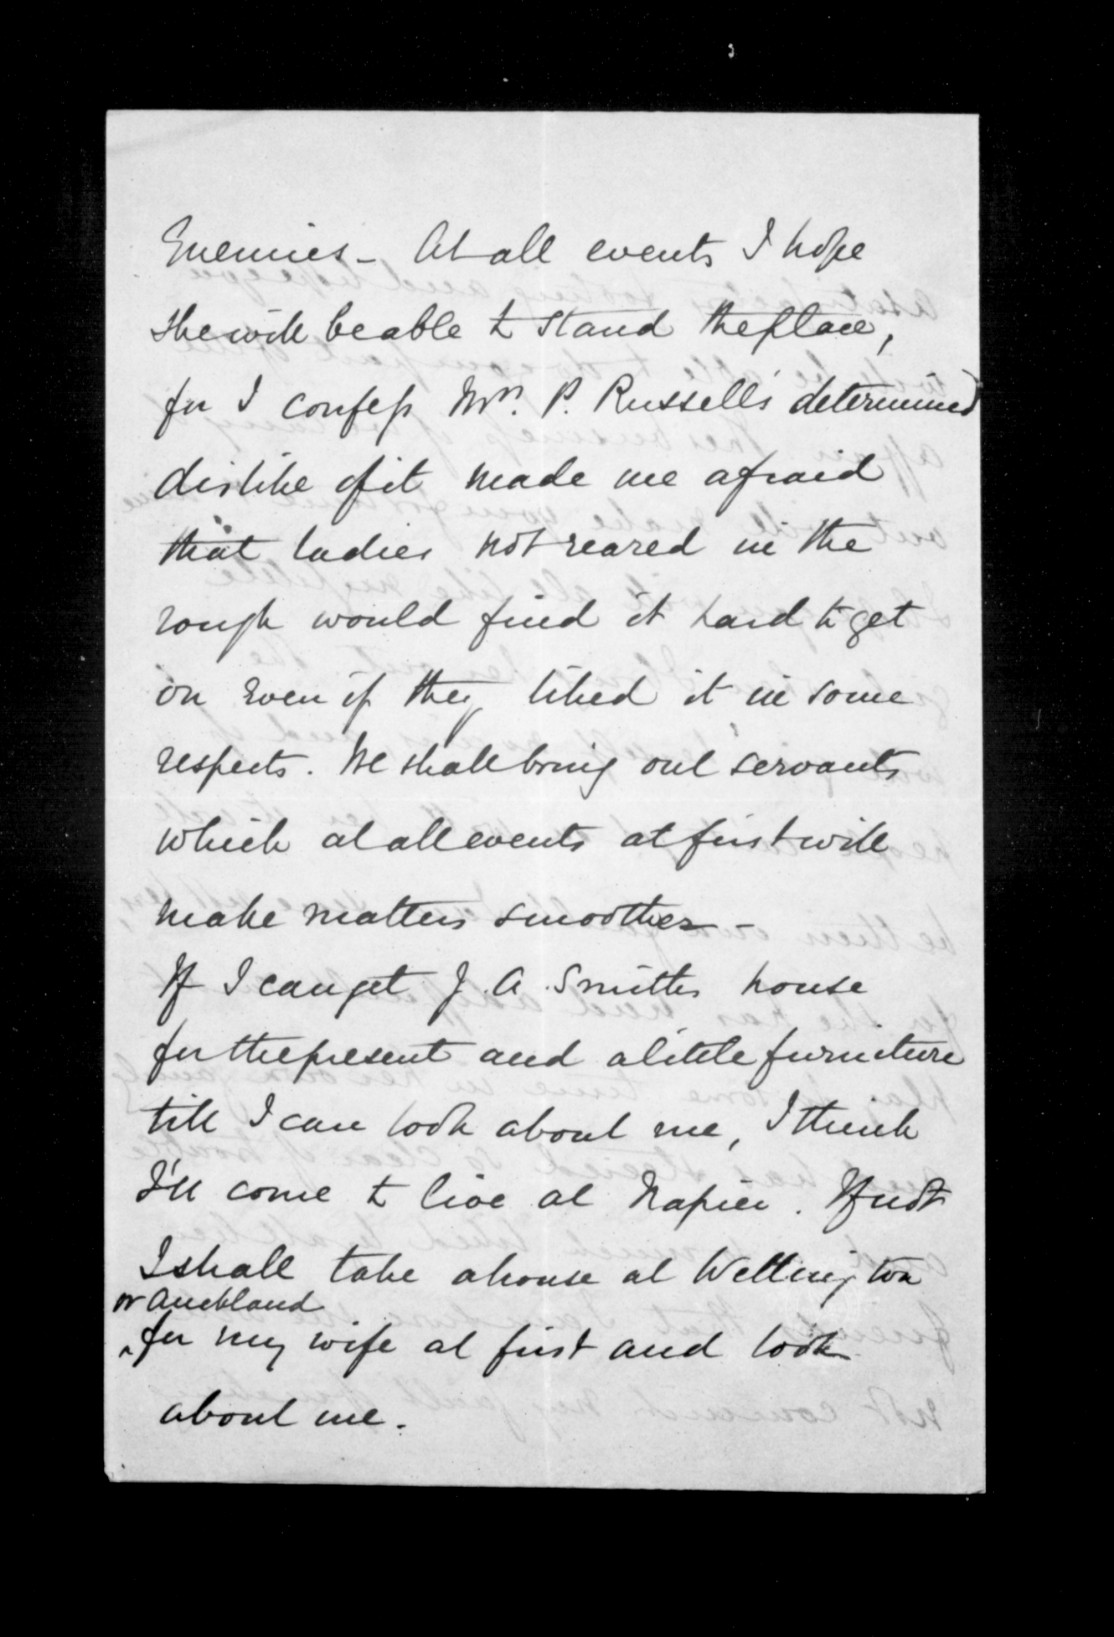 Enemies - At all events I hope
she will be able to stand the place,
for I confess Mrs. P. Russell's determined
dislike of it made me afraid
that ladies not reared in the
rough would find it hard to get
on even if they liked it in some
respects. We shall bring out servants
which at all events at first will
make matters smoother -
If I can get J. A. Smith's house
for the present and a little furniture
till I can look about me, I think
I'll come to live at Napier. If not
I shall take a house at Wellington
or Auckland
for my wife at first and look
about me.